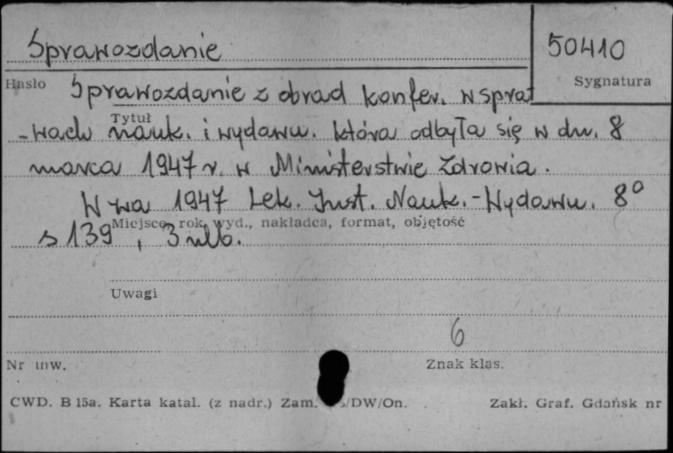 Sprawozdanie
50410
Hasło
Sygnatura
Sprawozdanie z obrad konfer. w spra
Tytuł
-wach nauk. i wydawn. która odbyła się w dn. 8
marca 1947 r. w Ministerstwie Zdrowia.
W-wa 1947 Lek. Inst. Nauk.-Wydawn. 8°
Miejsce, rok, wyd., nakładca, format, objętość
s 139, 3 nlb.
Uwagi
6
Nr inw.
Znak klas.
CWD. B 15a. Karta katal. (z nadr.) Zam. /DW/On.
Zakł. Graf. Gdańsk nr